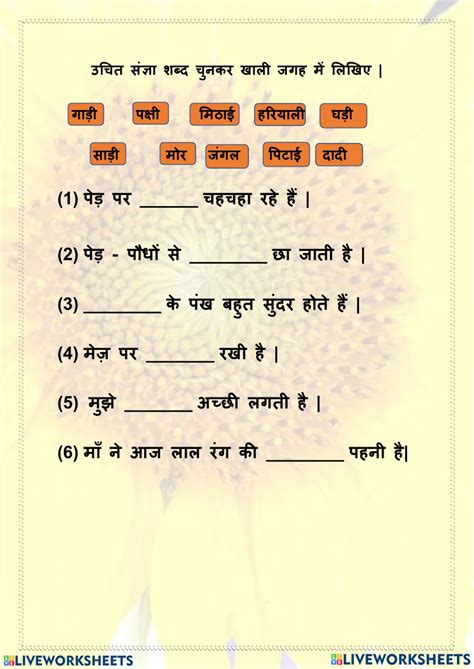 उचित संज्ञा शब्द चुनकर खाली जगह में लिखिए |
गाड़ी पक्षी मिठाई हरियाली घड़ी
साड़ी मोर जंगल पिटाई दादी
(1) पेड़ पर ______ चहचहा रहे हैं |
(2) पेड़ - पौधों से ________ छा जाती है |
(3) ________ के पंख बहुत सुंदर होते हैं |
(4) मेज़ पर _______ रखी है |
(5) मुझे _______ अच्छी लगती है |
(6) माँ ने आज लाल रंग की ________ पहनी है|
LIVEWORKSHEETS LIVEWORKSHEETS